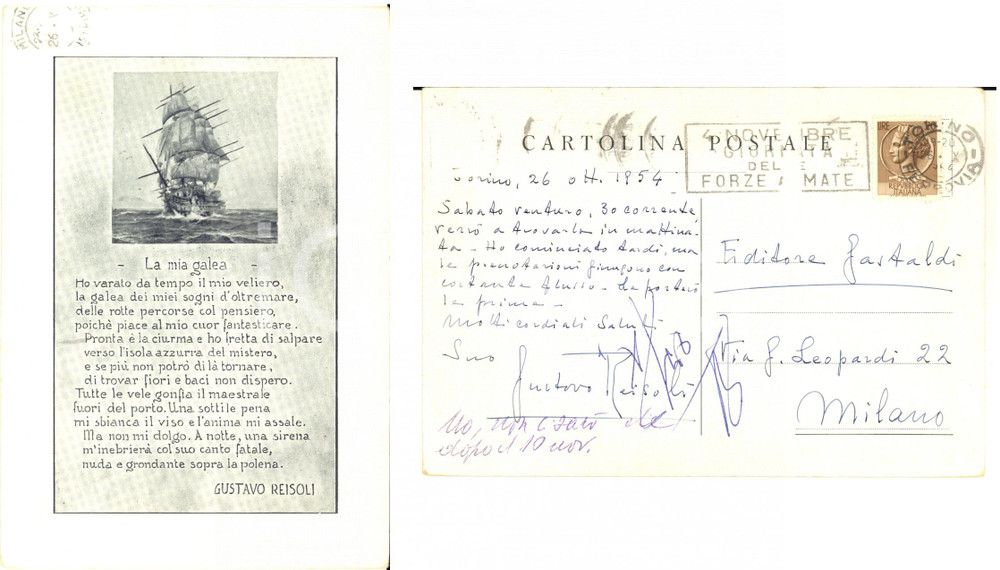 MILANO
26 · X
– La mia galea –
Ho varato da tempo il mio veliero,
la galea dei miei sogni d'oltremare,
delle rotte percorse col pensiero,
poichè piace al mio cuor fantasticare.
Pronta è la ciurma e ho fretta di salpare
verso l'isola azzurra del mistero,
e se più non potrò di là tornare,
di trovar fiori e baci non dispero.
Tutte le vele gonfia il maestrale
fuori del porto. Una sottile pena
mi sbianca il viso e l'anima mi assale.
Ma non mi dolgo. A notte, una sirena
m'inebrierà col suo canto fatale,
nuda e grondante sopra la polena.
GUSTAVO REISOLI
CARTOLINA POSTALE
4 NOVEMBRE
GIORNATA
DELLE
FORZE ARMATE
TORINO
LIRE
REPUBBLICA
ITALIANA
Torino, 26 ott. 1954
Sabato venturo, 30 corrente,
verrò a trovarla in mattina-
ta - Ho cominciato tardi, ma
le prenotazioni giungono con
costante flusso - Le porterò
le prime -
Molti cordiali saluti
Suo
Gustavo Reisoli
No, non ci sarò che
dopo il 10 nov.
Editore Gastaldi
Via G. Leopardi 22
Milano